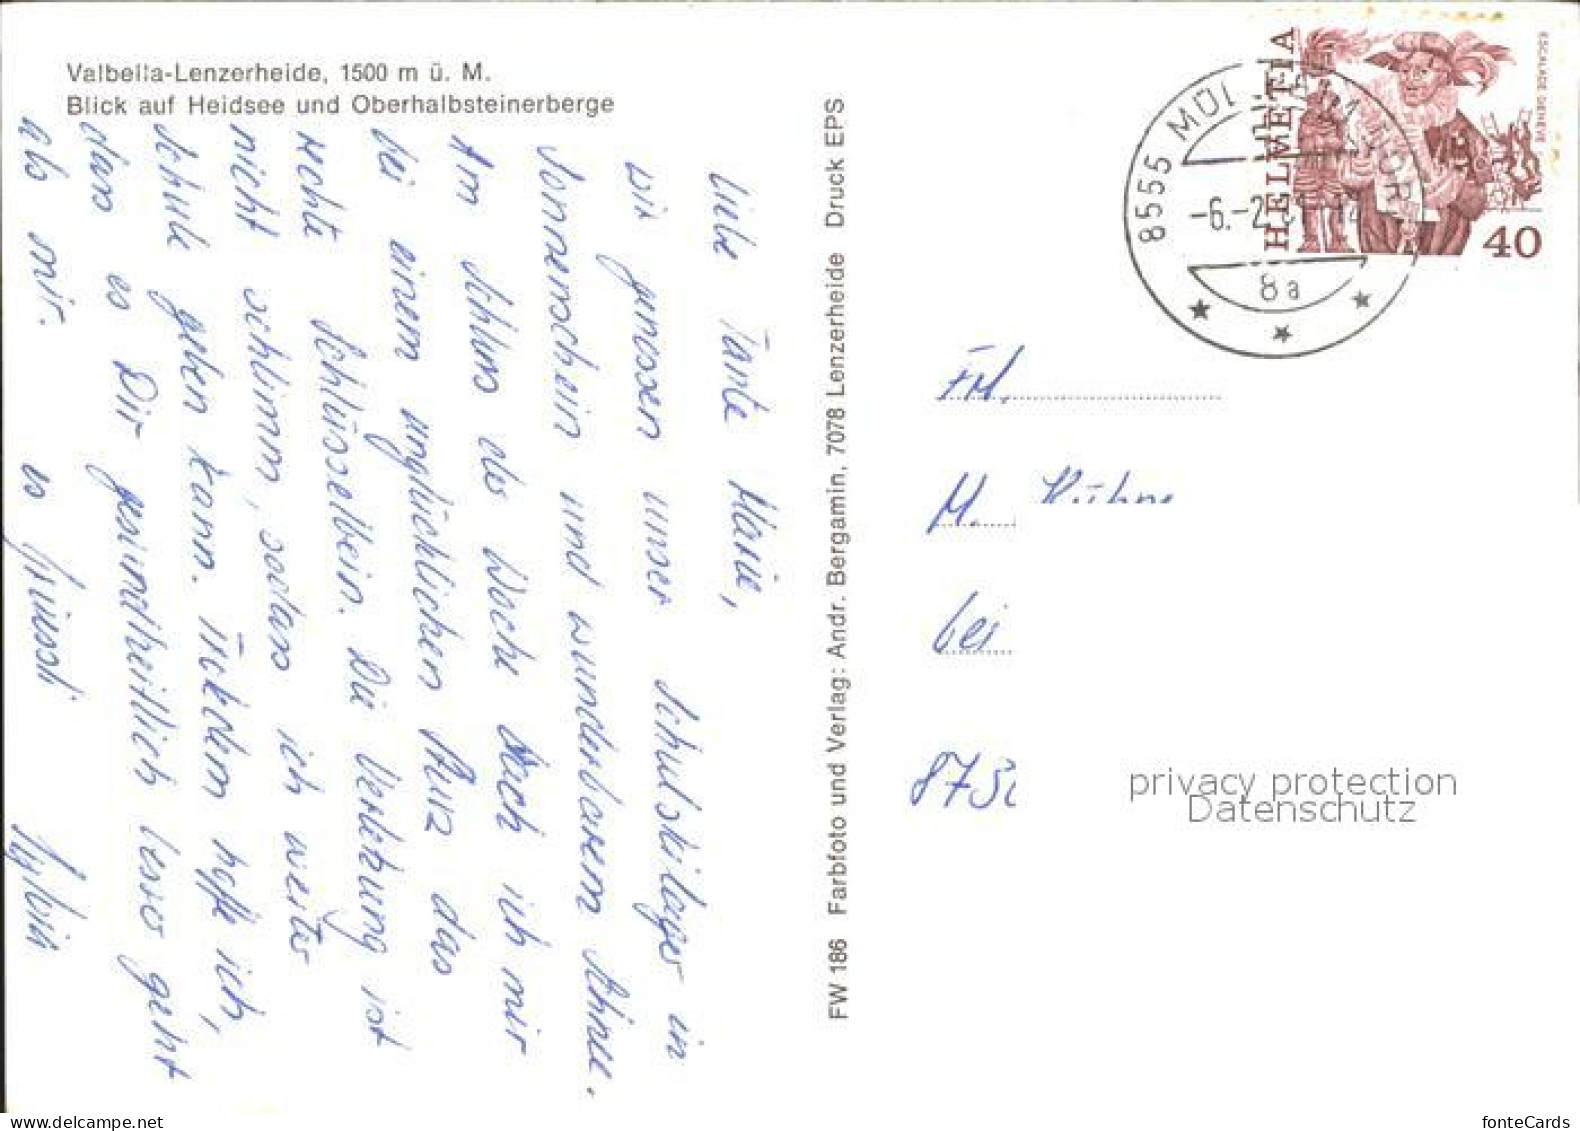 Valbella-Lenzerheide, 1500 m ü. M.
Blick auf Heidsee und Oberhalbsteinerberge
Liebe Tante Marie,
wir genossen unser Schulskilager in
Sonnenschein und wunderbarem Schnee.
Am Schluss der Woche brach ich mir
bei einem unglücklichen Sturz das
rechte Schlüsselbein. Die Verletzung ist
nicht schlimm, sodass ich weiter
Schule gehen kann. Trotzdem hoffe ich,
dass es Dir gesundheitlich besser geht
als mir. es Grüssli Sylvia
FW 186 Farbfoto und Verlag: Andr. Bergamin, 7078 Lenzerheide Druck EPS
HELVETIA
ESCALADE GENEVE
40
8555 MÜL
-6.-2
8a
Frl.
M. Kühne
bei
875
privacy protection
Datenschutz
fonteCards
www.delcampe.net